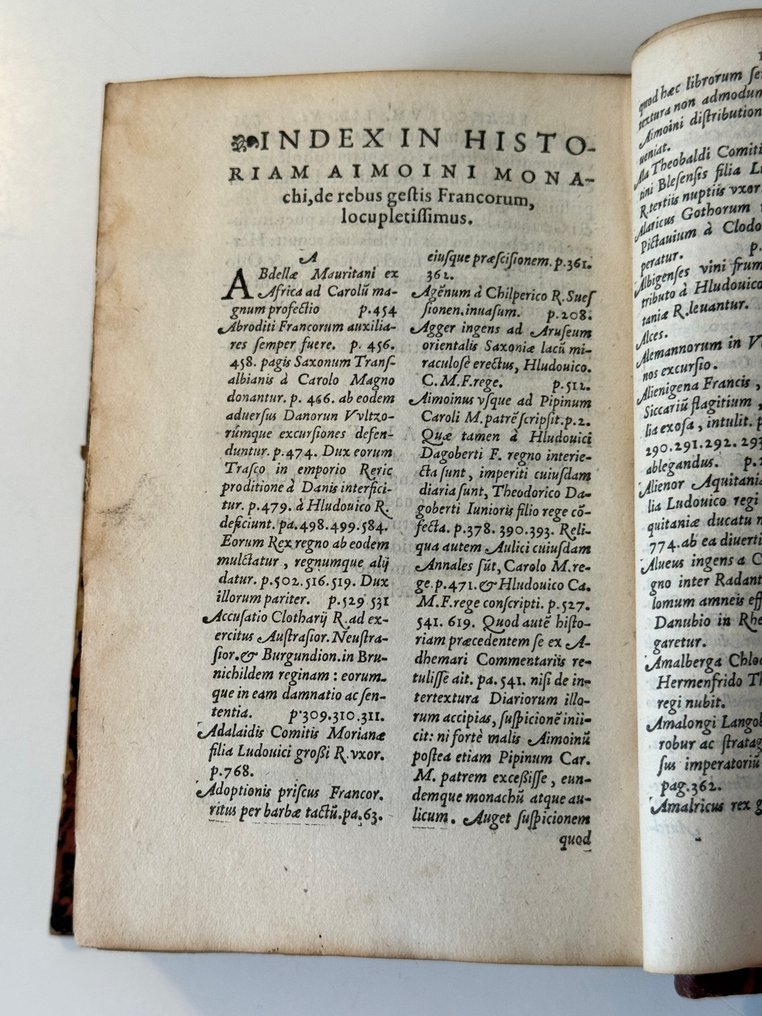 INDEX IN HISTO-
RIAM AIMOINI MONA-
chi, de rebus gestis Francorum,
locupletissimus.
A
ABdellæ Mauritani ex
Africa ad Carolū ma-
gnum profectio p.454
Abroditi Francorum auxilia-
res semper fuere. p. 456.
458. pagis Saxonum Trans-
albianis à Carolo Magno
donantur. p. 466. ab eodem
aduersus Danorun Vvltzo-
rúmque excursiones defen-
duntur. p.474. Dux eorum
Trasco in emporio Reric
proditione à Danis interfici-
tur. p.479. à Hludouico R.
deficiunt. pa.498.499.584.
Eorum Rex regno ab eodem
mulctatur, regnumque alij
datur. p.502.516.519. Dux
illorum pariter. p.529 531
Accusatio Clotharij R. ad ex-
ercitus Austrasior. Neustra-
sior. & Burgundion. in Bru-
nichildem reginam: eorum-
que in eam damnatio ac sen-
tentia. p.309.310.311.
Adalaidis Comitis Morianæ
filia Ludouici grossi R. vxor.
p.768.
Adoptionis priscus Francor.
ritus per barbæ tactū.pa.63.
eiusque præscisionem. p.361.
362.
Agēnum à Chilperico R. Sues
sionen. inuasum. p.208.
Agger ingens ad Aruseum
orientalis Saxoniæ lacū mi-
raculosè erectus, Hludouico.
C. M. F. rege. p.512.
Aimoinus vsque ad Pipinum
Caroli M. patrē scripsit.p.2.
Quæ tamen à Hludouici
Dagoberti F. regno interie-
cta sunt, imperiti cuiusdam
diaria sunt, Theodorico Da-
goberti Iunioris filio rege cō-
fecta. p.378. 390.393. Reli-
qua autem Aulici cuiusdam
Annales sūt, Carolo M. re-
ge.p.471.& Hludouico Ca.
M. F. rege conscripti. p.527.
541. 619. Quod autē histo-
riam præcedentem se ex A-
dhemari Commentariis re-
tulisse ait. pa.541. nisi de in-
tertextura Diariorum illo-
rum accipias, suspicionē inii-
cit: ni fortè malis Aimoinū
postea etiam Pipinum Car.
M. patrem excessisse, eun-
demque monachū atque au-
licum. Auget suspicionem
quod
quod hæc librorum
textura non admodum
Aimoini distribution
ueniat.
Theobaldi Comiti
tini Blesensis filia
R. tertiis nuptiis vxor
Alaricus Gothorum
Pictauium à Clodo
peratur. p.
Albigenses vini frum
tributo à Hludouico
taniæ R. leuantur.
Alces.
Alemannorum in
nos excursio.
Alienigena Francis,
Siccariū flagitium,
lia exosa, intulit. p
290.291.292.293
ablegandus. p.
Alienor Aquitania
lia Ludouico regi
quitaniæ ducatu
774.ab ea diuerti
Alueus ingens a C
gno inter Radant
lomum amneis eff
Danubio in Rhe
garetur.
Amalberga Chlo
Hermenfrido Th
regi nubit.
Amalongi Langob
robur ac stratag
sus imperatoriū
pag.362.
Amalricus rex g